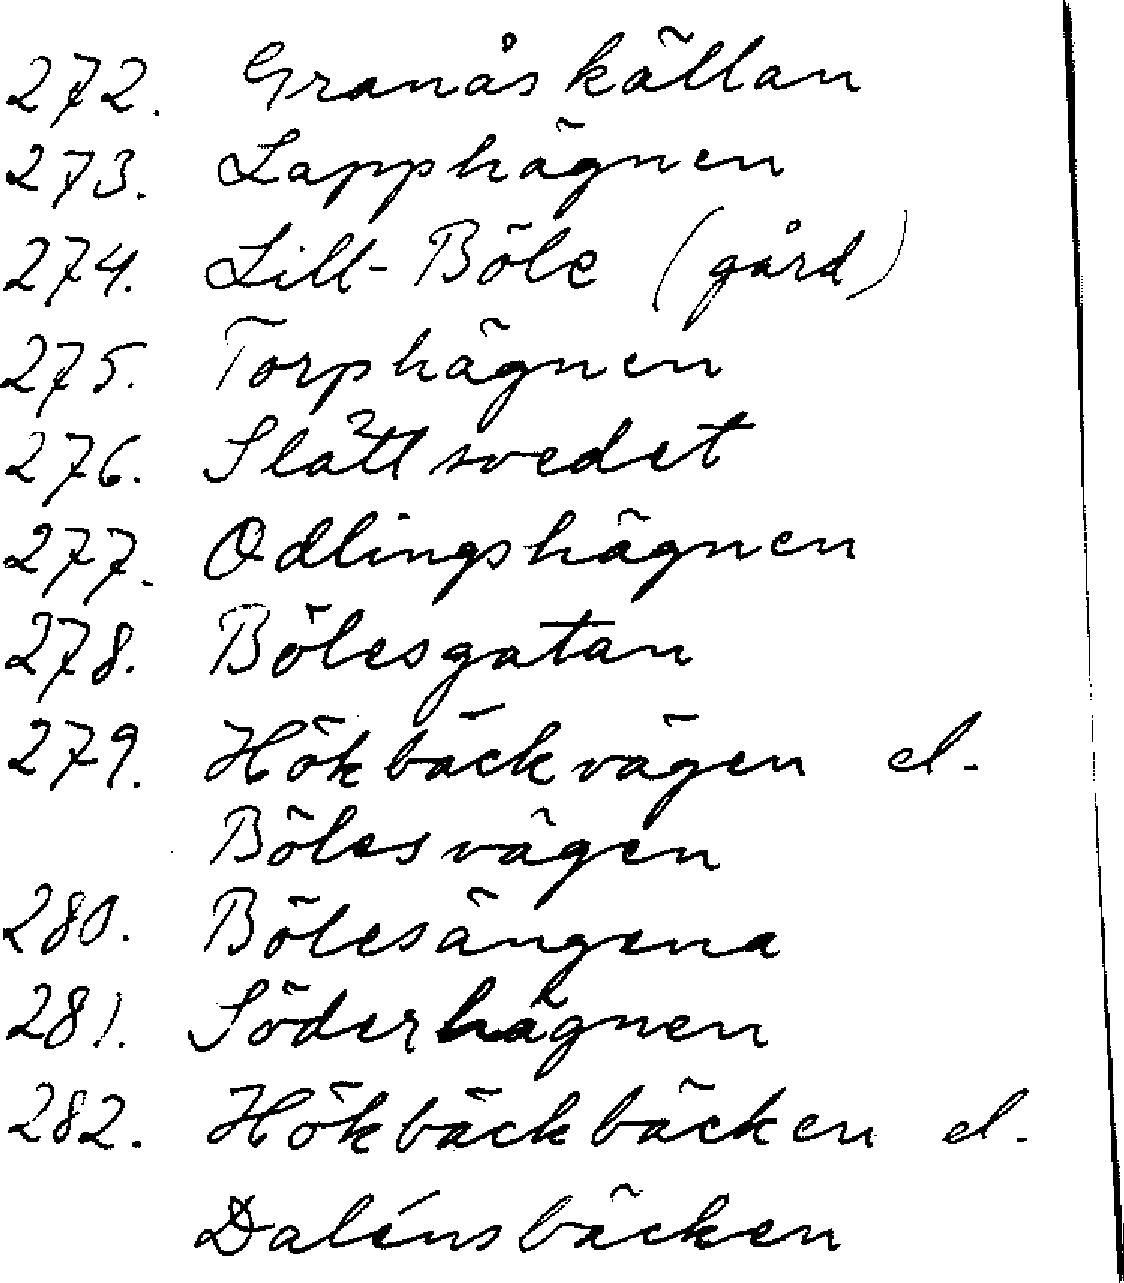 272. Granåskällan
273. Lapphägnen
274. Lill-Böle (gård)
275. Torphägnen
276. Slättsvedet
277. Odlingshägnen
278. Bölesgatan
279. Hökbäckvägen el.
Bölesvägen
280. Bölesängena
281. Söderhägnen
282. Hökbäckbäcken el.
Dalénsbäcken